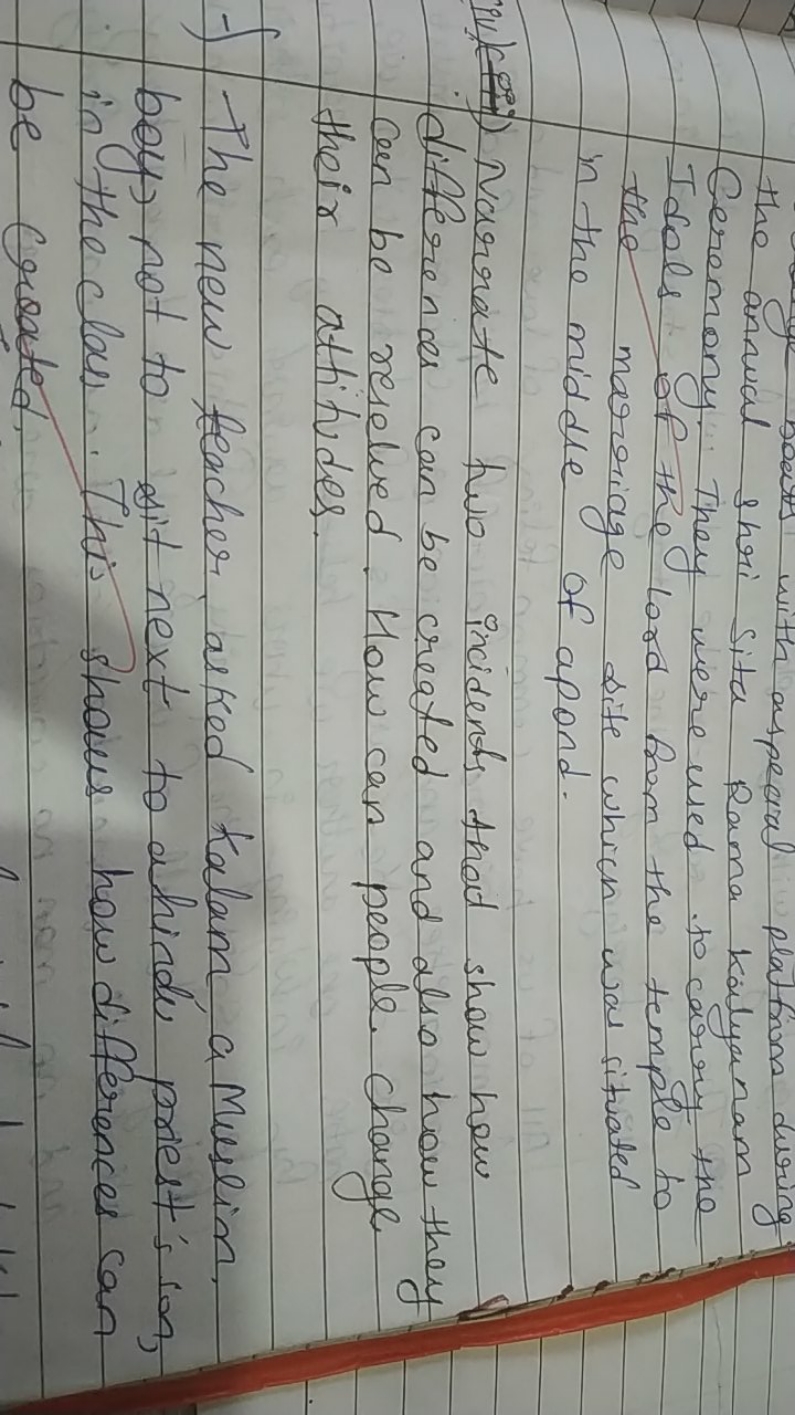 the annual shri sita Rama kalyanam
Ceremony. They were used to carry the
Idols of the lord from the temple to
the marriage site which was situated
in the middle of apond.
Narrate two incidents that show how
differences can be created and also how they
can be resolved. How can people change
their attitudes.
The new teacher asked kalam, a Muslim,
boy, not to sit next to a hindu priest's son,
in the class. This shows how differences can
be created.